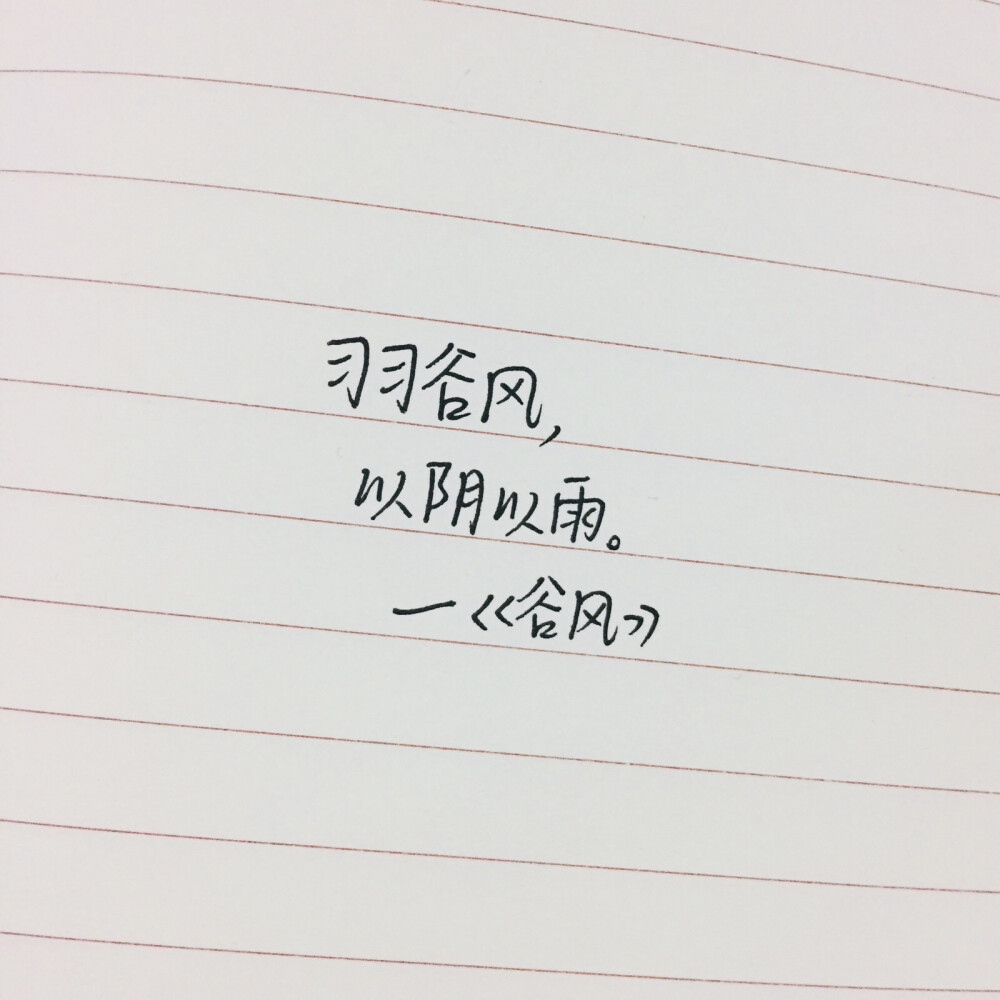 习习谷风，
以阴以雨。
—《谷风》